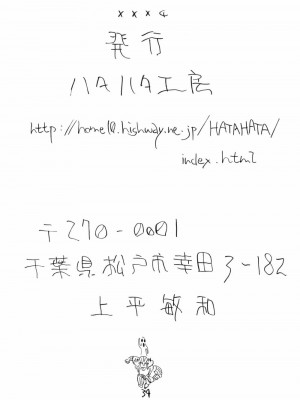 ×××4
発行
ハタハタ工房
http://home10.highway.ne.jp/HATAHATA/
index.html
〒270-0001
千葉県松戸市幸田3-182
上平敏和
34